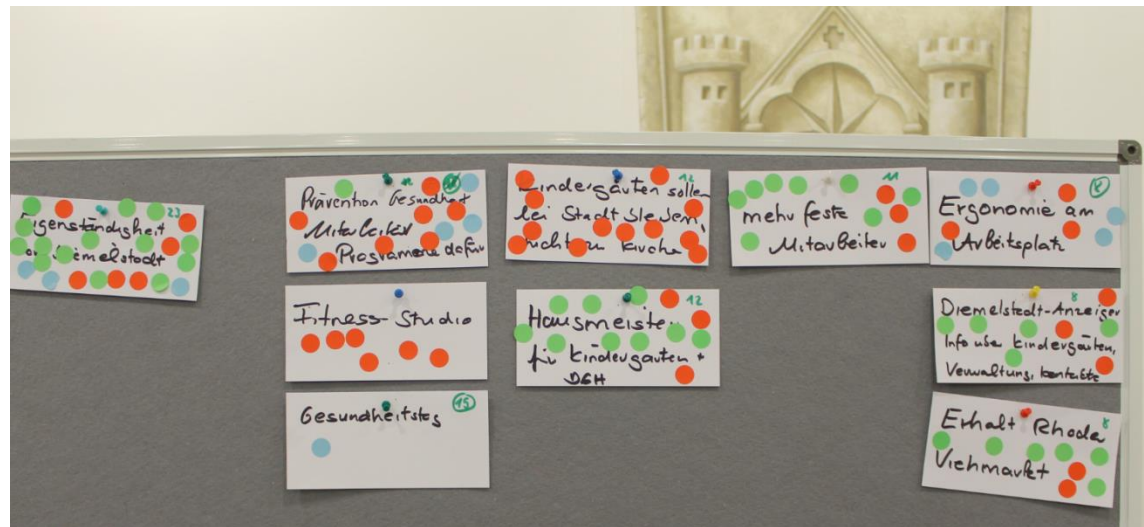 23
Eigenständigheit
von Diemelstadt
12
Prävention Gesundheit
Mitarbeiter
Programme dafür
Fitness-Studio
Gesundheitstag
15
12
Kindergärten sollen
bei Stadt bleiben,
nicht an Kirche
12
Hausmeister
für Kindergarten +
DGH
11
mehr feste
Mitarbeiter
8
Ergonomie am
Arbeitsplatz
8
Diemelstadt-Anzeiger
Info über Kindergärten,
Verwaltung,
8
Erhalt Rhoder
Viehmarkt